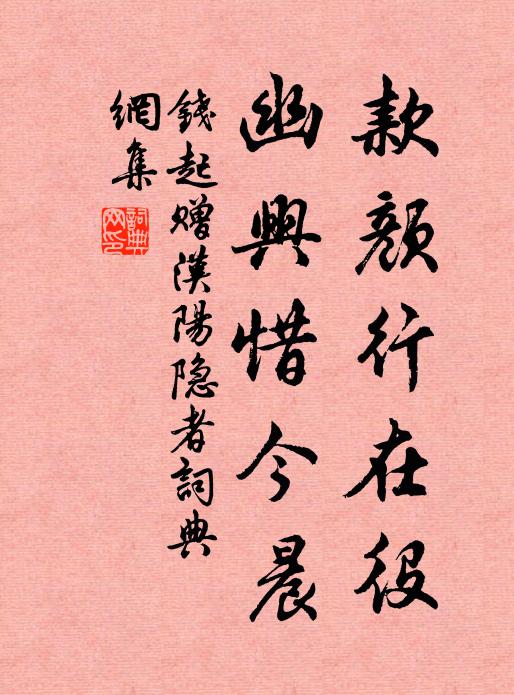 款颜行在役
幽興惜今晨
錢起赠漢陽隐者詞典
網集
詞典
网印